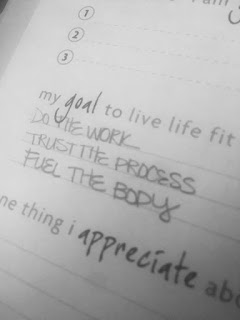 i am
1
2
3
my goal to live life fit
DO THE WORK
TRUST THE PROCESS
FUEL THE BODY
ne thing i appreciate abo